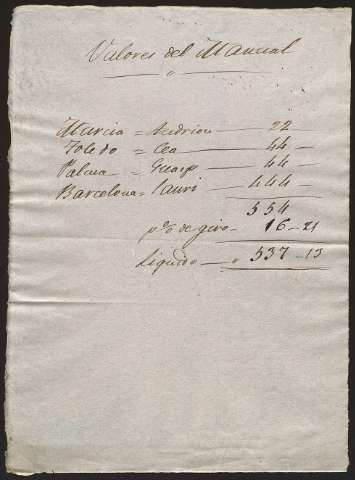 Valores del Manual
Murcia = Andrion — 22
Toledo = Cea — 44 —
Palma = Guasp — 44 —
Barcelona = Pauri — 444 —
554
p% de giro — 16 — 21
Liquido — " 537 — 13